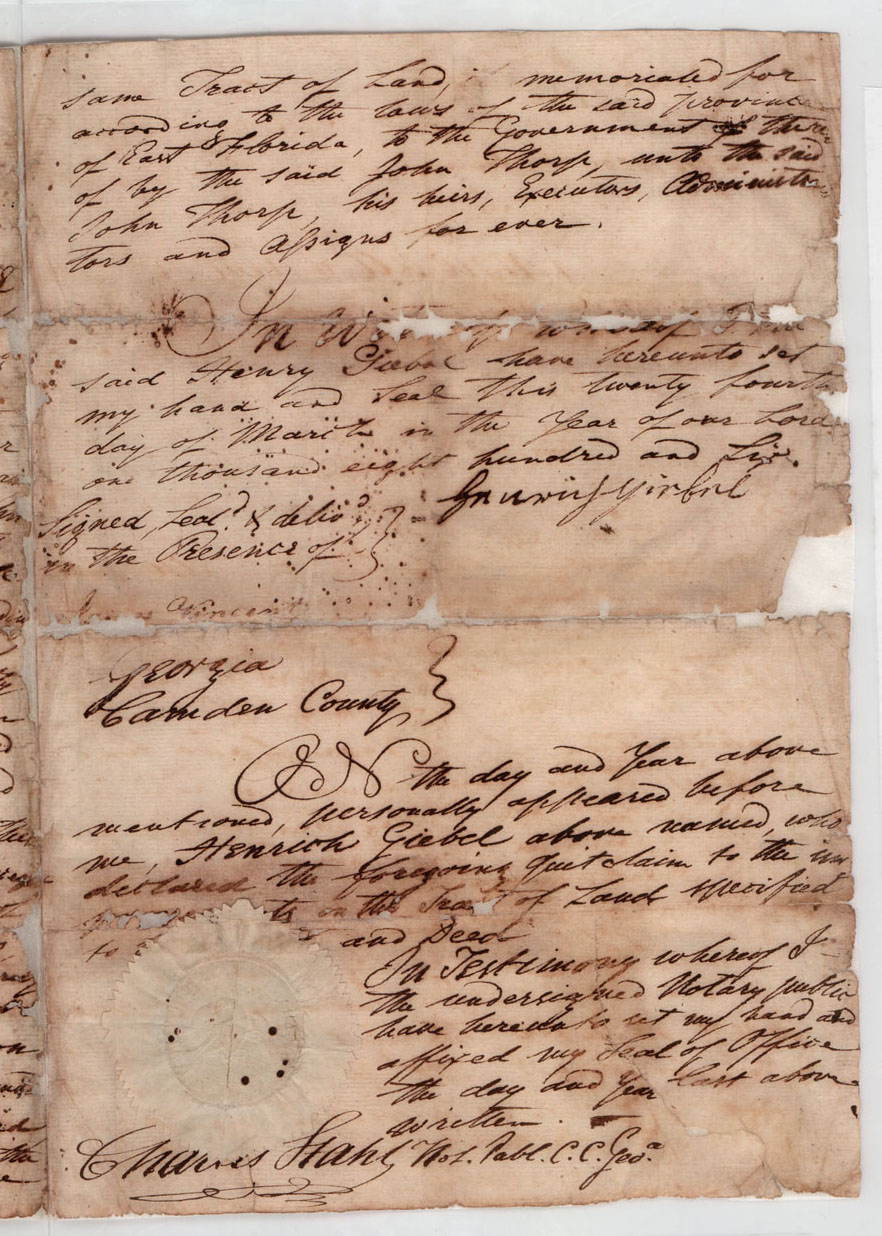 same Tract of Land, memorialed for
according to the laws of the said province
of East Florida, to the Government of there
of by the said John Thorp, unto the said
John Thorp, his heirs, Executors, Administra
tors and Assigns for ever.
In whereof I
said Henry Giebel have hereunto set
my hand and Seal this twenty fourth
day of March in the Year of our Lord
one thousand eight hundred and Six.
Signed, Seal.d & deliv.d
in the Presence of
Henrich Giebel
Vincent
Georgia
Camden County
ON the day and Year above
mentioned, personally appeared before
me, Henrich Giebel above named, who
declared the foregoing Quitclaim to the im
in the Tract of Land specified
to and Deed
In Testimony whereof I
the undersigned Notary public
have hereunto set my hand and
affixed my Seal of Office
the day and Year last above
written.
Charles Stahl Not. Publ. C.C. Geo.a